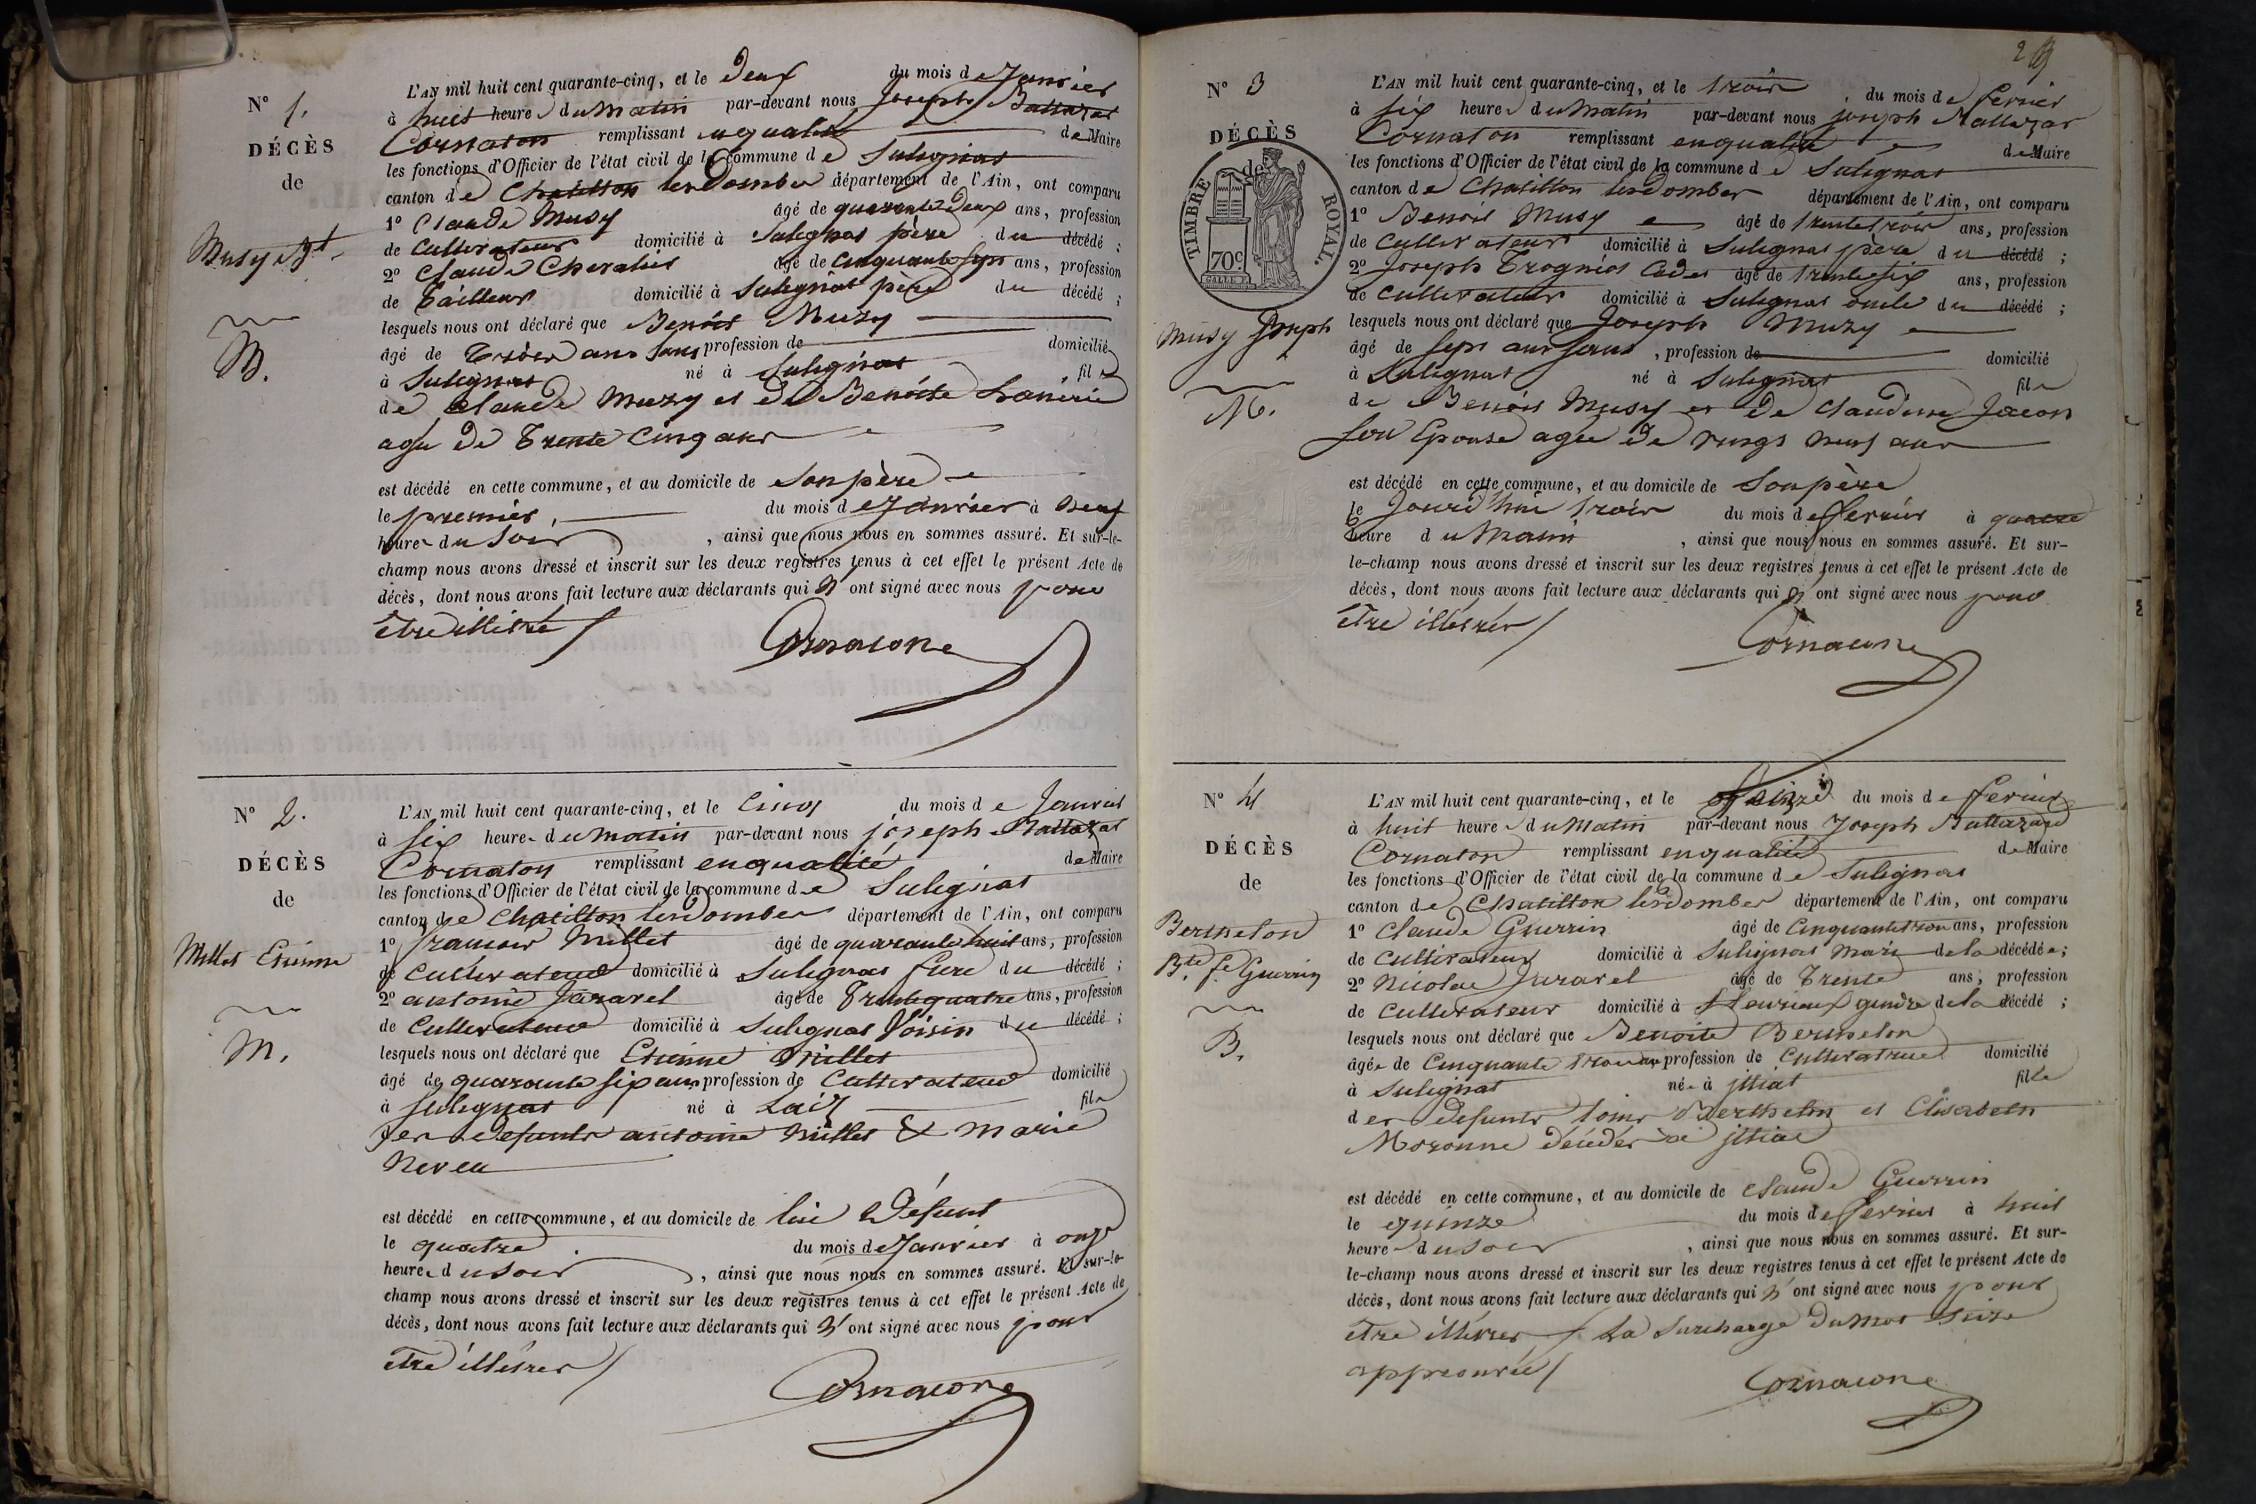 N° 1.
DÉCÈS
de
Musy Bt
B.
L'AN mil huit cent quarante-cinq, et le deux du mois de Janvier
à huit heure du Matin par-devant nous Joseph Baltazar
Cornaton remplissant en qualité de Maire
les fonctions d'Officier de l'état civil de la commune de Sulignat
canton de Chatillon les Dombes département de l'Ain, ont comparu
1° Claude Musy âgé de quarante deux ans, profession
de Cultivateur domicilié à Sulignat père du décédé ;
2° Claude Chevalier âgé de Cinquante sept ans, profession
de Tailleur domicilié à Sulignat père du décédé ;
lesquels nous ont déclaré que Benoit Muzy
âgé de Trois ans Sans profession de domicilié
à Sulignat né à Sulignat fils
de Claude Muzy et de Benoite
agée de Trente Cinq ans
est décédé en cette commune, et au domicile de Son père
le premier, du mois de Janvier à Neuf
heure du Soir, ainsi que nous nous en sommes assuré. Et sur-le-
champ nous avons dressé et inscrit sur les deux registres tenus à cet effet le présent Acte de
décès, dont nous avons fait lecture aux déclarants qui n'ont signé avec nous pour
être illitré /
Cornatone
N° 2.
DÉCÈS
de
Millet Etienne
M.
L'AN mil huit cent quarante-cinq, et le Cinq du mois de Janvier
à six heure du matin par-devant nous joseph Baltazat
Cornaton remplissant en qualité de Maire
les fonctions d'Officier de l'état civil de la commune de Sulignat
canton de Chatillon les Dombes département de l'Ain, ont comparu
1° francois Millet âgé de quarante huit ans, profession
de Cultivateur domicilié à Sulignat frere du décédé ;
2° antoine Juzarel âgé de Trente quatre ans, profession
de Cultivateur domicilié à Sulignat Voisin du décédé ;
lesquels nous ont déclaré que Etienne Millet
âgé de quarante six ans profession de Cultivateur domicilié
à Sulignat né à Laiz fils
des defunts antoine Millet & Marie
Neveu
est décédé en cette commune, et au domicile de lui Défunt
le quatre du mois de Janvier à onze
heure du Soir, ainsi que nous nous en sommes assuré. Et sur-le-
champ nous avons dressé et inscrit sur les deux registres tenus à cet effet le présent Acte de
décès, dont nous avons fait lecture aux déclarants qui n'ont signé avec nous pour
être illétrer /
Cornatone
2
N° 3
DÉCÈS
de
TIMBRE ROYAL.
70c
Musy Joseph
M.
L'AN mil huit cent quarante-cinq, et le trois du mois de fevrier
à six heure du Matin par-devant nous joseph Baltazar
Cornaton remplissant en qualité de Maire
les fonctions d'Officier de l'état civil de la commune de Sulignat
canton de Chatillon les Dombes département de l'Ain, ont comparu
1° Benoit Musy âgé de trente trois ans, profession
de Cultivateur domicilié à Sulignat père du décédé ;
2° Joseph Trognios Cadet âgé de trente six ans, profession
de Cultivateur domicilié à Sulignat oncle du décédé ;
lesquels nous ont déclaré que Joseph Muzy
âgé de Sept ans Sans, profession de domicilié
à Sulignat né à Sulignat fils
de Benoit Musy et de Claudine Jacon
Son Epouse agée de vingt neuf ans
est décédé en cette commune, et au domicile de Son père
le Jourd'hui trois du mois de fevrier à quatre
heure du Matin, ainsi que nous nous en sommes assuré. Et sur-
le-champ nous avons dressé et inscrit sur les deux registres tenus à cet effet le présent Acte de
décès, dont nous avons fait lecture aux déclarants qui n'ont signé avec nous pour
être illétrer /
Cornatone
N° 4
DÉCÈS
de
Berthelon
Bte fe Guerrin
B.
L'AN mil huit cent quarante-cinq, et le Seize du mois de fevrier
à huit heure du Matin par-devant nous Joseph Baltazard
Cornaton remplissant en qualité de Maire
les fonctions d'Officier de l'état civil de la commune de Sulignat
canton de Chatillon les Dombes département de l'Ain, ont comparu
1° Claude Guerrin âgé de Cinquante trois ans, profession
de Cultivateur domicilié à Sulignat Mari de la décédée ;
2° Nicolas Juzarel âgé de Trente ans, profession
de Cultivateur domicilié à fleurieux gendre de la décédé ;
lesquels nous ont déclaré que Benoite Berthelon
âgée de Cinquante trois ans profession de Cultivatrice domicilié
à Sulignat née à jlliat fille
des defunts Berthelon et Elisabeth
Moronne décédés à jlliat
est décédé en cette commune, et au domicile de Claude Guerrin
le quinze du mois de fevrier à huit
heure du soir, ainsi que nous nous en sommes assuré. Et sur-
le-champ nous avons dressé et inscrit sur les deux registres tenus à cet effet le présent Acte de
décès, dont nous avons fait lecture aux déclarants qui n'ont signé avec nous pour
être illétrer / La Surcharge du mot Seize
approuvée /
Cornatone